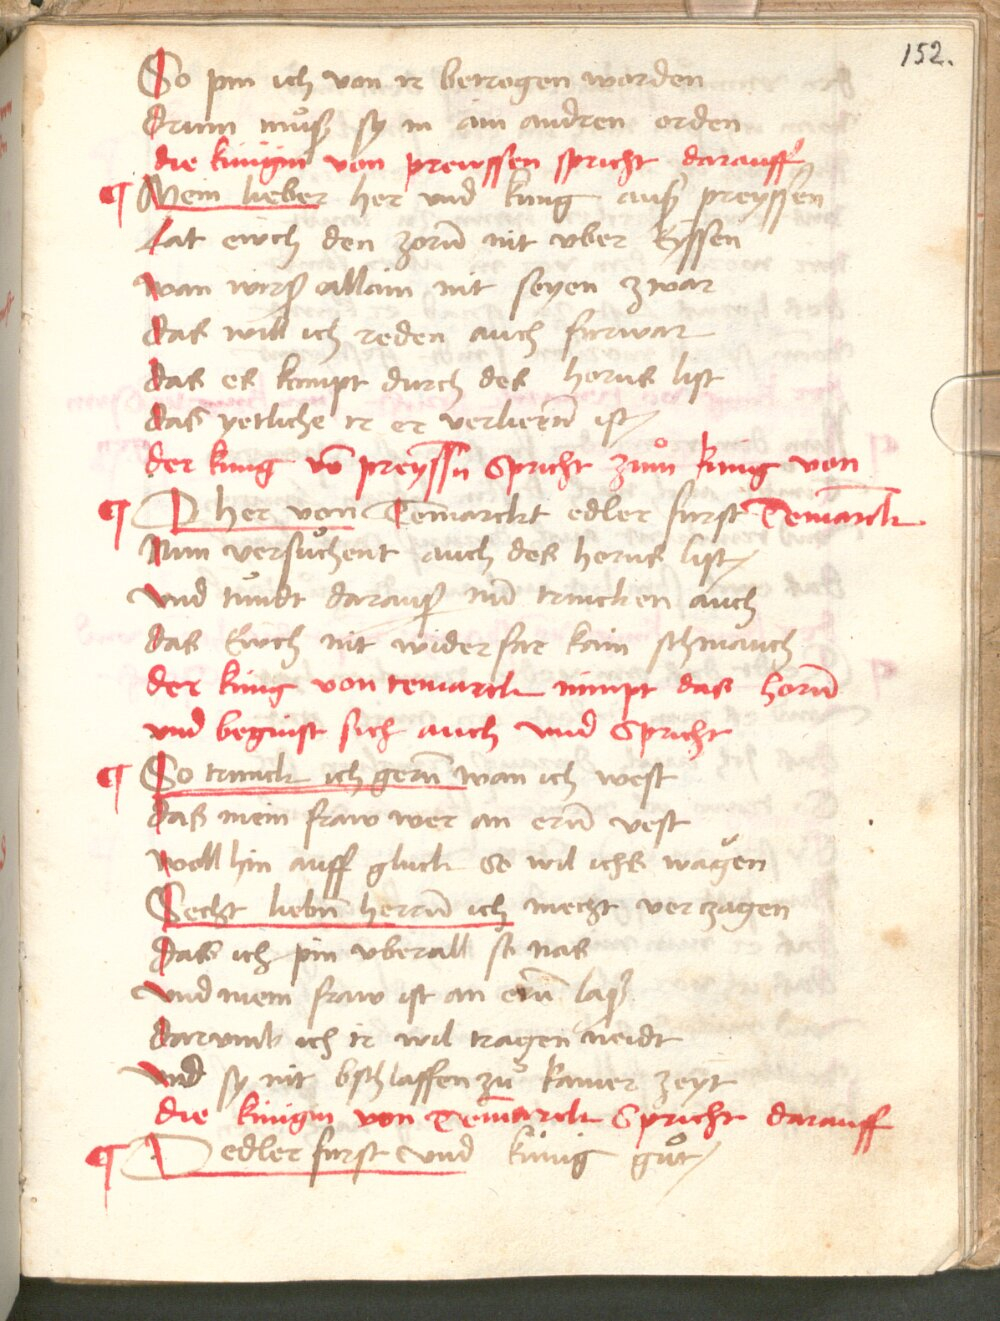 152.
So pin ich von ir betrogen worden
darum muͦß sy in ain andren orden
die kunigin von preuyssen spricht darauff
¶ Mein lieber her vnd kung auß preyssen
Lat ewch den zorn̄ nit vber
wan wirß allain nit seyen zwar
das will ich reden auch furwar
das es kompt durch des horns list
das yetliche ir er verliern̄ ist
der kung vō preyssn̄ Spricht zuͦm kung von
¶ O her von Tēmarckt edler furst Temarck
Nun versuͦchent auch des horns list
vnd tuͦndt darauß nun̄ trincken auch
das Ewch nit widerfar kain schmach
der kung von temarck nimpt das horn̄
vnd begiust sich auch vnd Spricht
¶ So trinck ich gern̄ wan ich west
das mein fraw wer an ern̄ vest
woll hin auff gluck so wil ichs wagen
Secht liebn̄ herrn̄ ich mecht verzagen
das ich pin vberall so nas
vnd mein fraw ist an ern̄ laß
darvmb ich ir wil tragen neidt
vnd sy nit bschlaffen zuͦ kainer zeyt
die kungin von Tēmarck Spricht darauff
¶ O edler furst vnd kunig guͦt